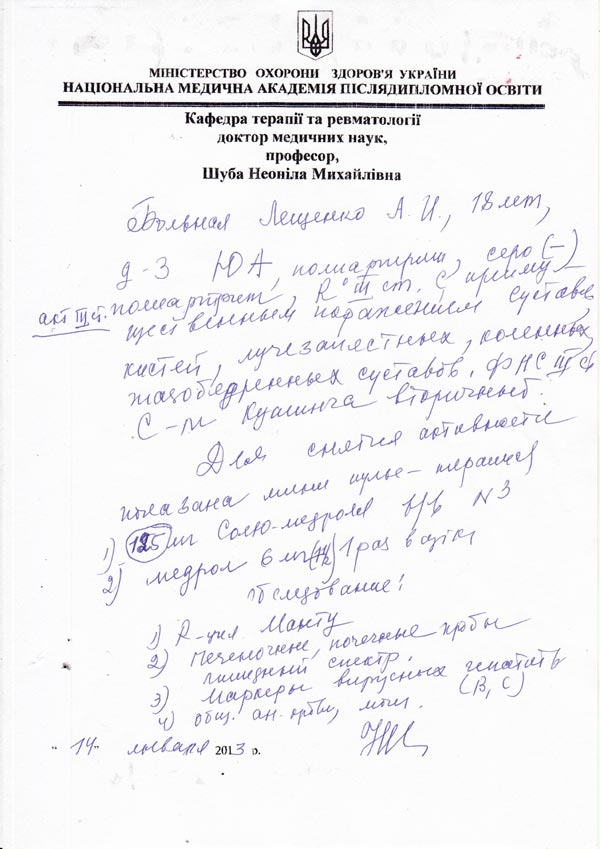 МІНІСТЕРСТВО ОХОРОНИ ЗДОРОВ'Я УКРАЇНИ
НАЦІОНАЛЬНА МЕДИЧНА АКАДЕМІЯ ПІСЛЯДИПЛОМНОЇ ОСВІТИ
Кафедра терапії та ревматології
доктор медичних наук,
професор,
Шуба Неоніла Михайлівна
Больная Лещенко А. И., 18 лет,
д-з ЮА, серо (–)
акт III ст. полиартрит, R° III ст. С преиму-
щественным поражением суставов
кистей, лучезапястных, коленных,
тазобедренных суставов. ФНС III ст
С-м Кушинга вторичный.
Для снятия активности
показана мини пульс-терапия
1) 125 мг Солю-медрола в/в N 3
2) медрол 6 мг 1 раз в
Обследование:
1) R-ция Манту
2) Печеночные, почечные пробы
липидный спектр.
3) Маркеры вирусных гепатитов
(В, С)
4) общ. ан. крови, мочи.
"14" января 2013 р.